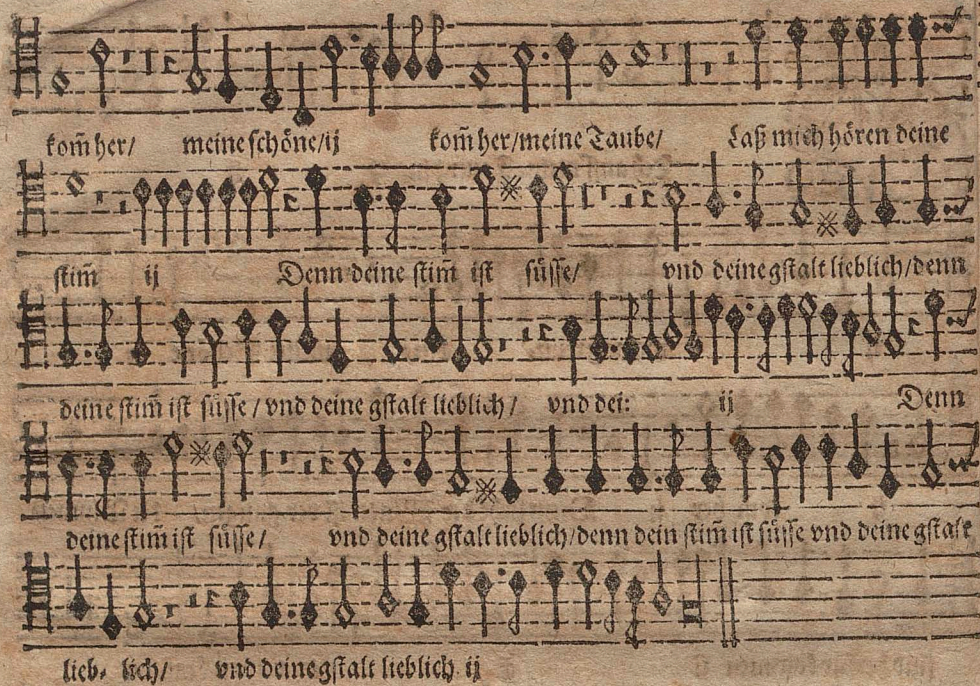 kom̃ her/ meine schöne/ij kom̃ her/meine Taube/ Laß mich hören deine
stim̃ ij Denn deine stim̃ ist süsse/ vnd deine gstalt lieblich/denn
deine stim̃ ist süsse / vnd deine gstalt lieblich / vnd dei: ij Denn
deine stim̃ ist süsse / vnd deine gstalt lieblich/denn dein stim̃ ist süsse vnd deine gstalt
lieb- lich/ vnd deine gstalt lieblich ij